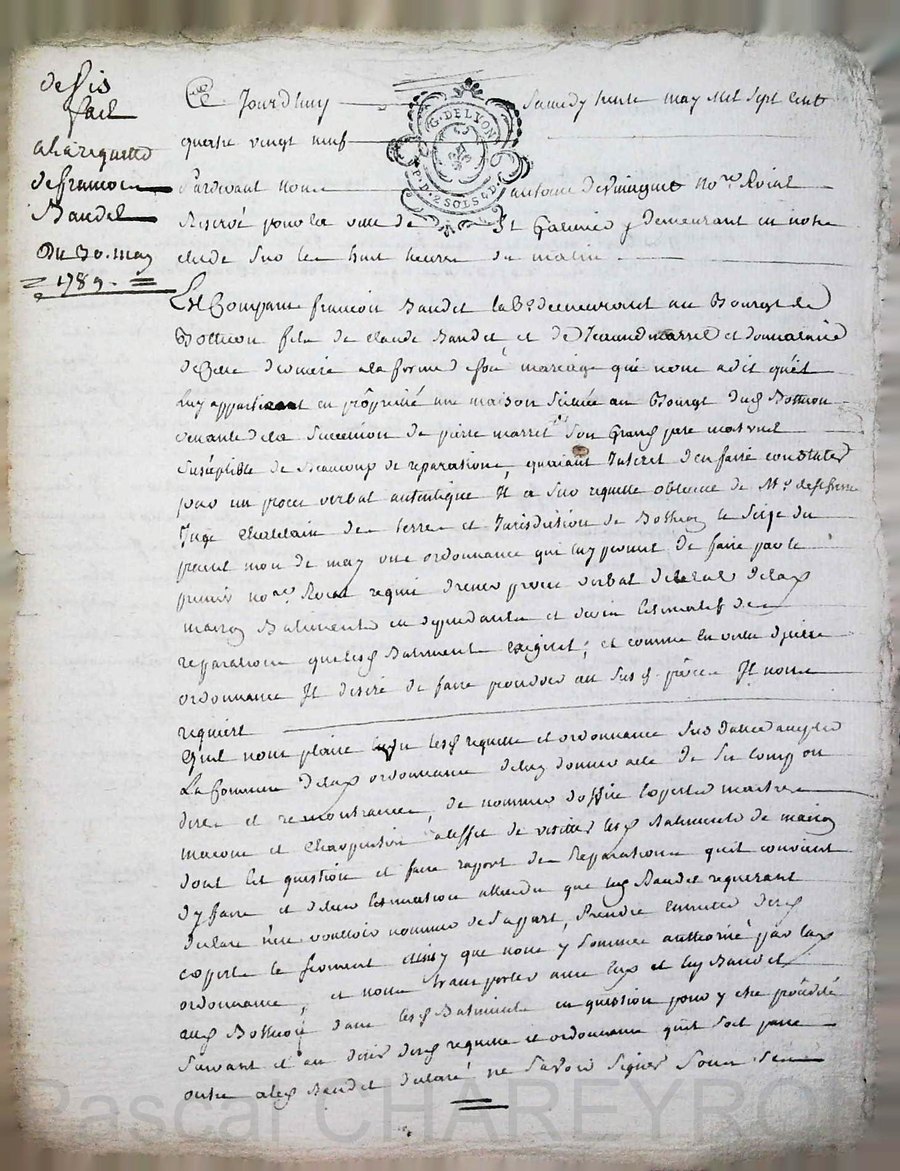 fait
a la requette
de françois
Baudet
Du 30. may
1789.
Ce Jourdhuy samedy trente may mil sept cent
quatre vingt neuf
G. DE LYON
P. D. 2 SOLS 4 D.
Pardevant nous antoine no.re Roial
Reservé pour la ville de St Galmier y demeurant en notre
etude sur les huit heures du matin
Est Comparu françois Baudet lab.r demeurant au Bourg de
Botheon fils de claude Baudet et de marret et donnataire
de cette derniere a la forme de son mariage qui nous a dit qu'il
luy appartient en propriété une maison Scituée au Bourg dud Botheon
venante de la succession de pierre marret son Grand pere maternel
susceptible de Beaucoup de reparations, qu'aiant Interet d'en faire constater
par un proces verbal autentique Il a sur requette obtenue de Mr.
Juge Chatelain des terres et Jurisdiction de Botheon le seize du
present mois de may une ordonnance qui luy permet de faire par le
premier no.re Roial requis dresser proces verbal de l'etat de lad
maison Batiments en dependants et devis estimatif des
reparations que lesd Batiments exigent; et comme en vertu de
ordonnance Il desire de faire proceder au susd. proces Il nous
requiert
Qu'il nous plaise vu lesd requette et ordonnance sus datée accepter
La Commission de lad ordonnance de luy donner acte de sa comp.on
dires et remontrances, de nommer d'office experts maitres
macons et Charpentier a l'effet de visitter lesd Batiments de maison
dont est question et faire rapport des Reparations qu'il convient
d'y faire et de leur estimation attendu que led Baudet requerant
declare n'en vouloir nommer de sa part, Prendre ensuitte desd
experts le serment que nous y sommes authorisé par lad
ordonnance, et nous transporter avec eux et led Baudet
aud Botheon dans lesd Batiments en question pour y etre procédé
suivant et au desir desd requette et ordonnance qu'il soit passé
outre a led Baudet declaré ne savoir signer
Pascal CHAREYRON